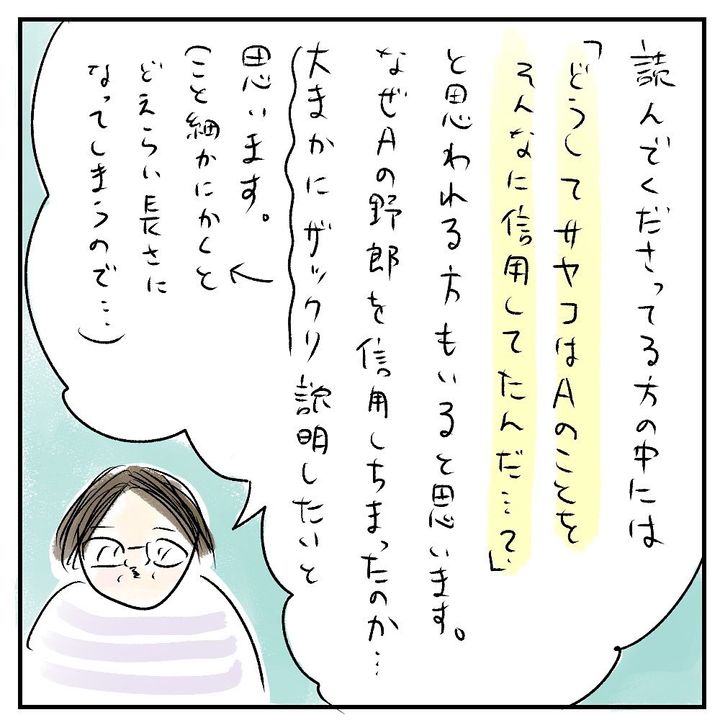 読んでくださってる方の中には
「どうしてサヤコはAのことを
そんなに信用してたんだ…?」
と思われる方もいると思います。
なぜAの野郎を信用しちまったのか…
大まかにザックリ説明したいと
思います。
(こと細かにかくと
どえらい長さに
なってしまうので…)